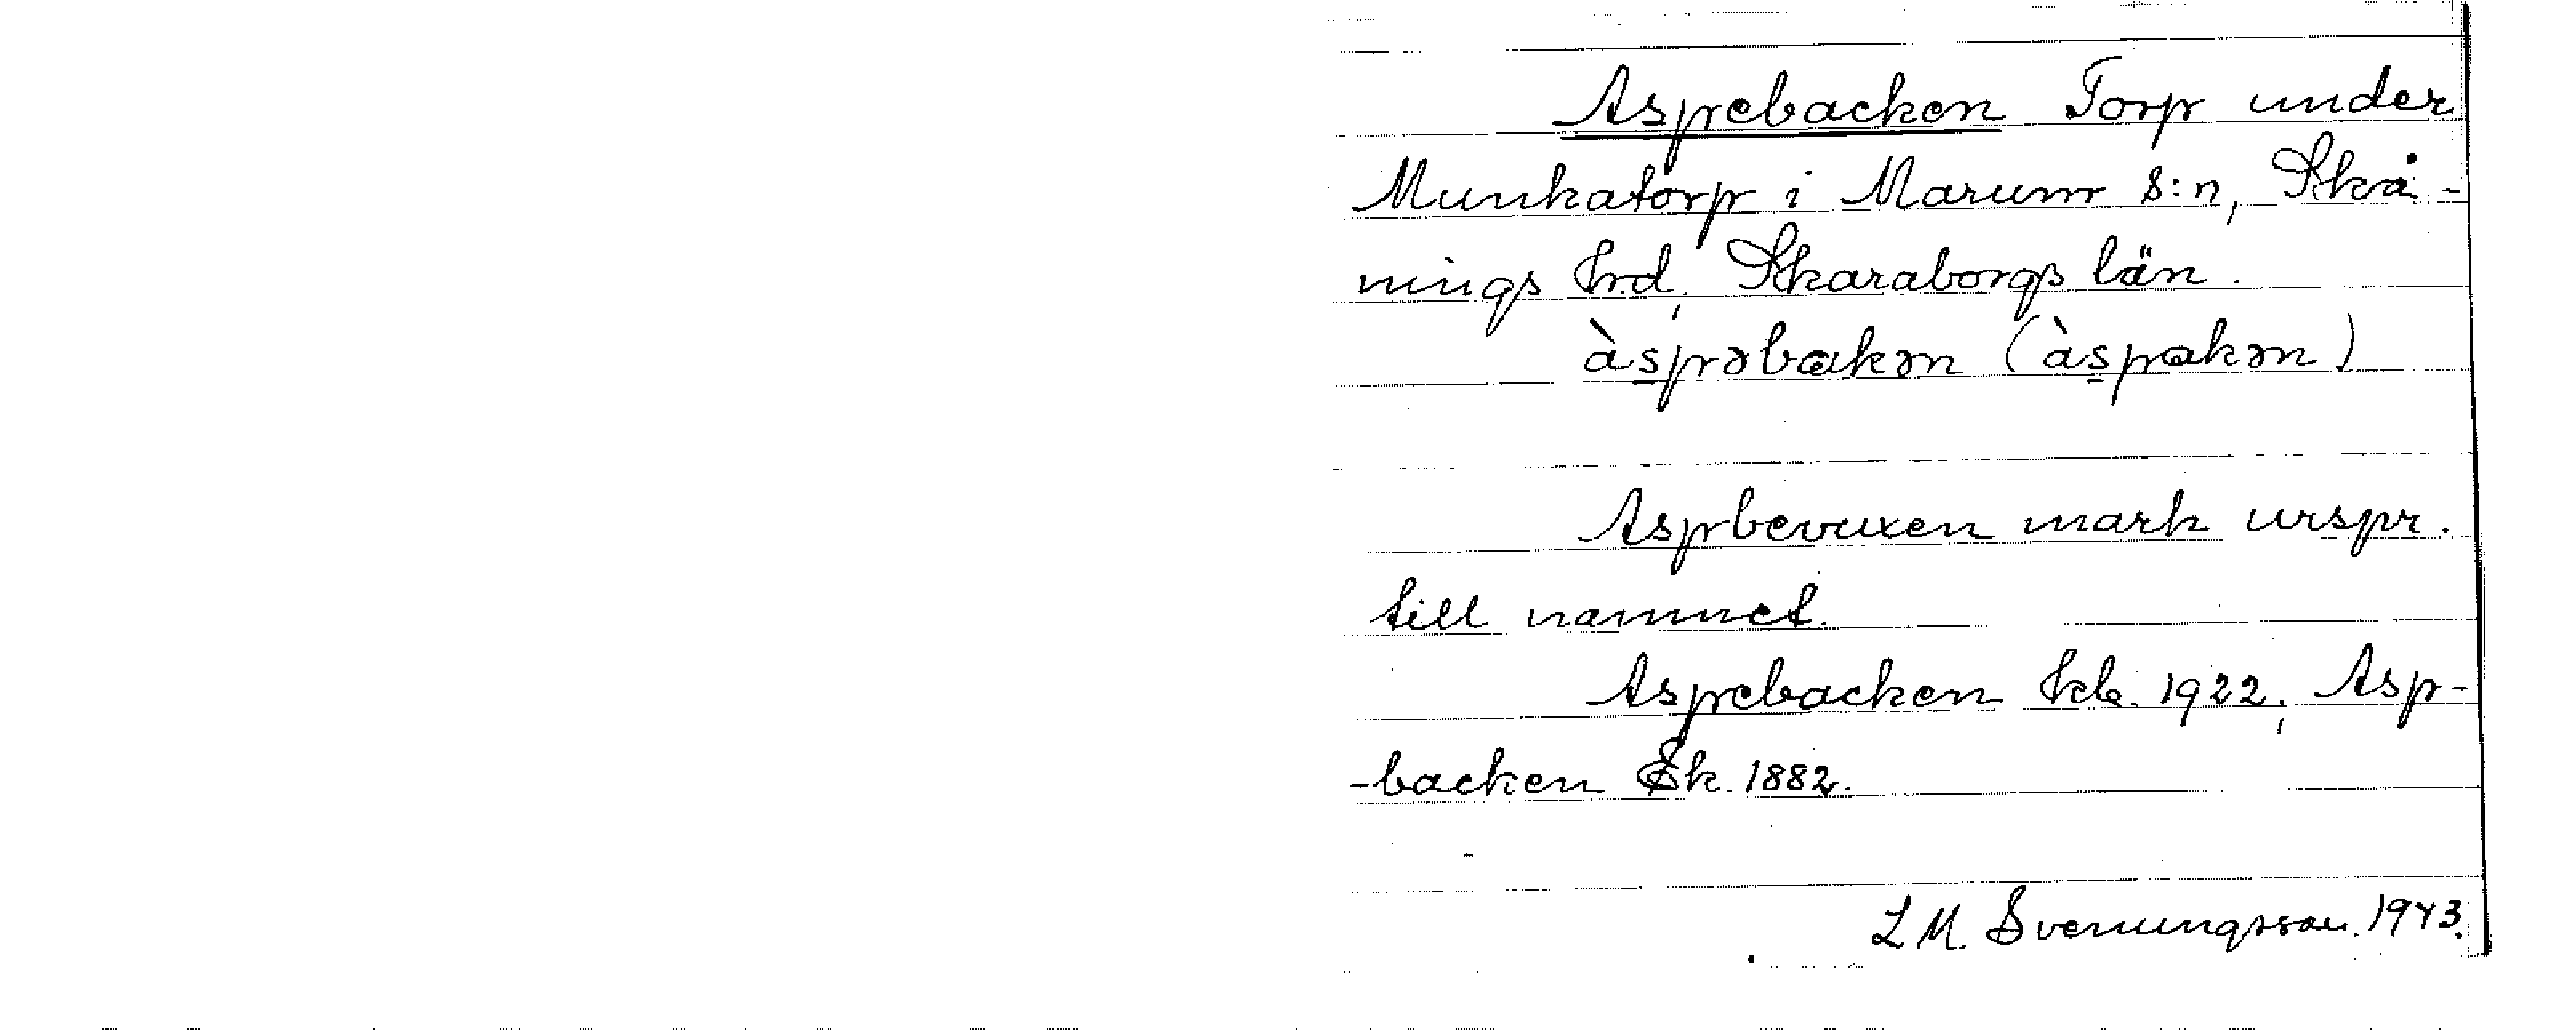 Aspebacken Torp under
Munkatorp i Marum s:n, Skå-
nings hrd, Skaraborgs län.
àspəbakən (àspakən)
Aspbevuxen mark urspr.
till namnet.
Aspebacken kb. 1922; Asp-
-backen Ek. 1882.
L M. Svenungsson. 1943.